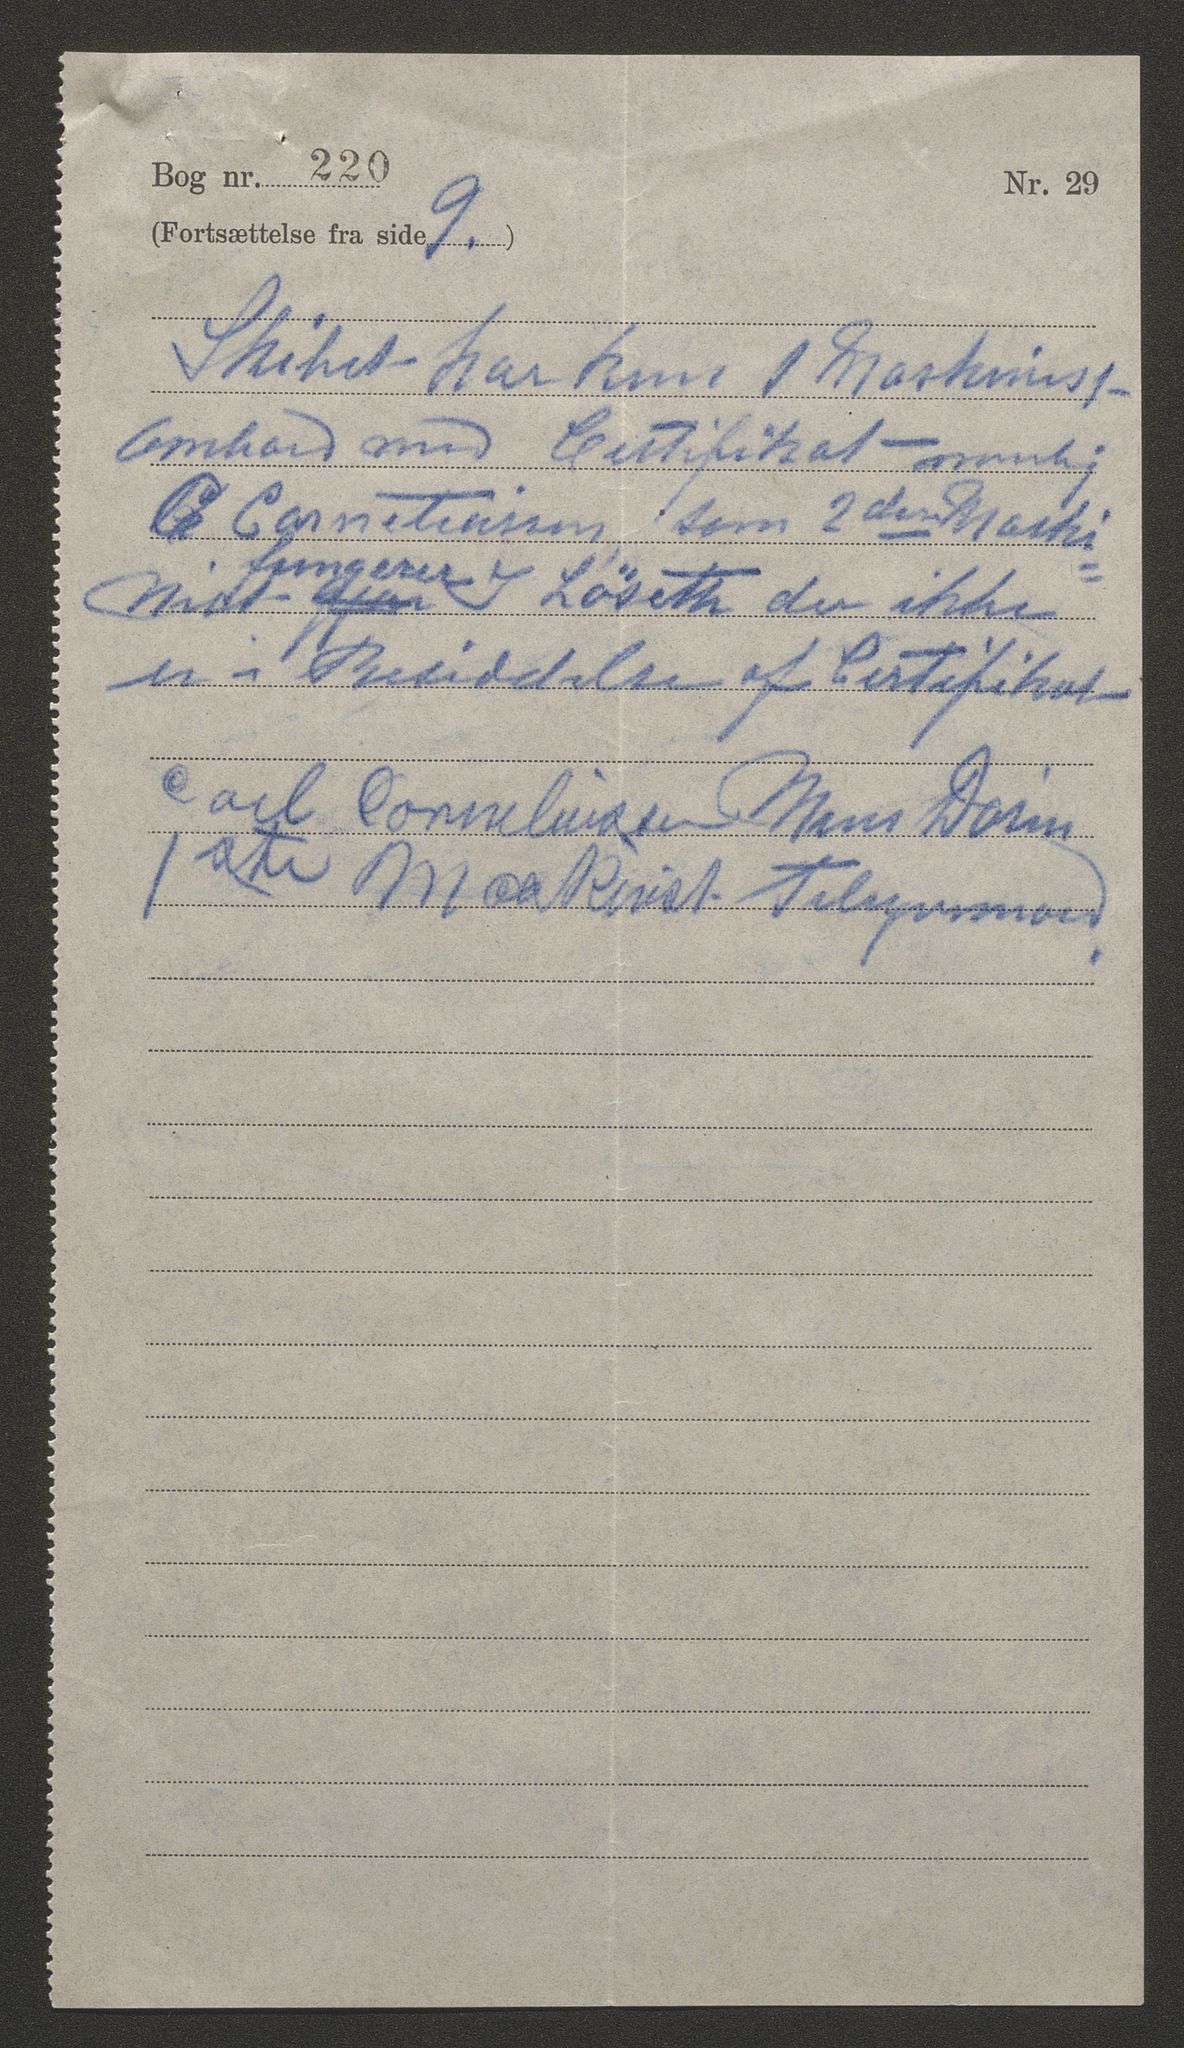 Bog nr. 220
Nr. 29
(Fortsættelse fra side 9.)
Skibet har kun 1 Maskinist
ombord med Certifikat nemlig
C Corneliussen, som 2den Maski=
nist fungerer J Löseth der ikke
er i Besiddelse af Certifikat
Carl Corneliussen
1ste Maskinist Tilsynsmand.